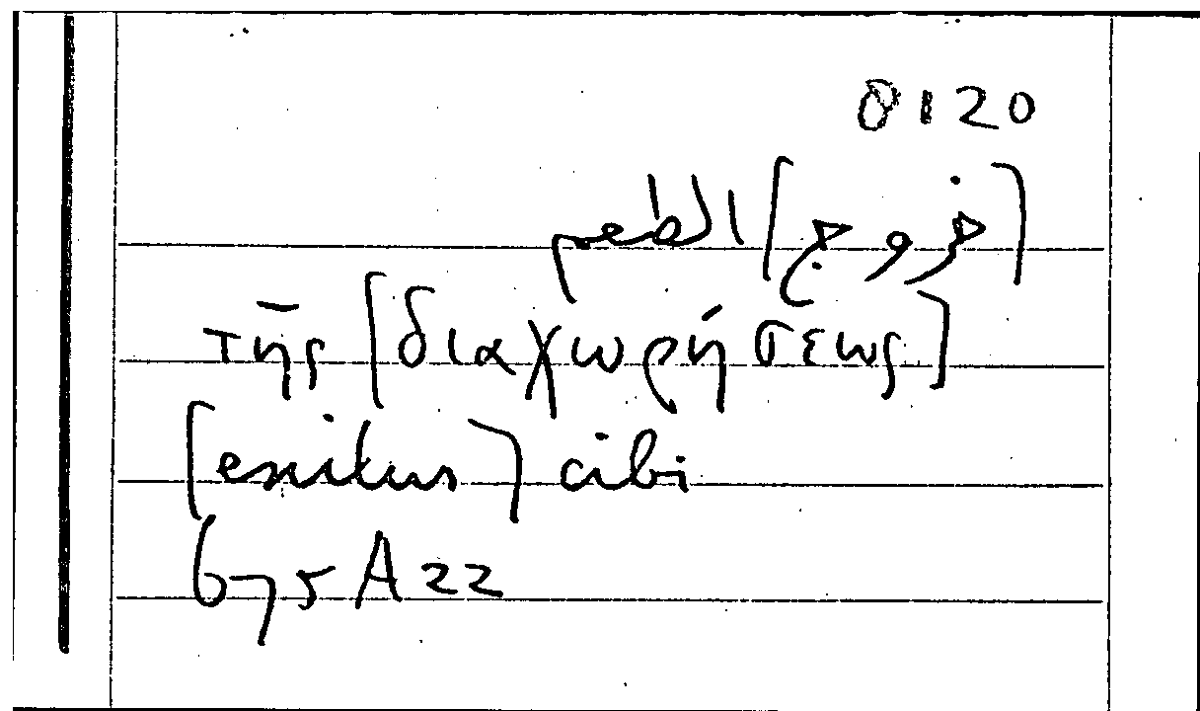 0120
[خروج] الطعم
τῆς [διαχωρήσεως]
[exitus] cibi
675A22